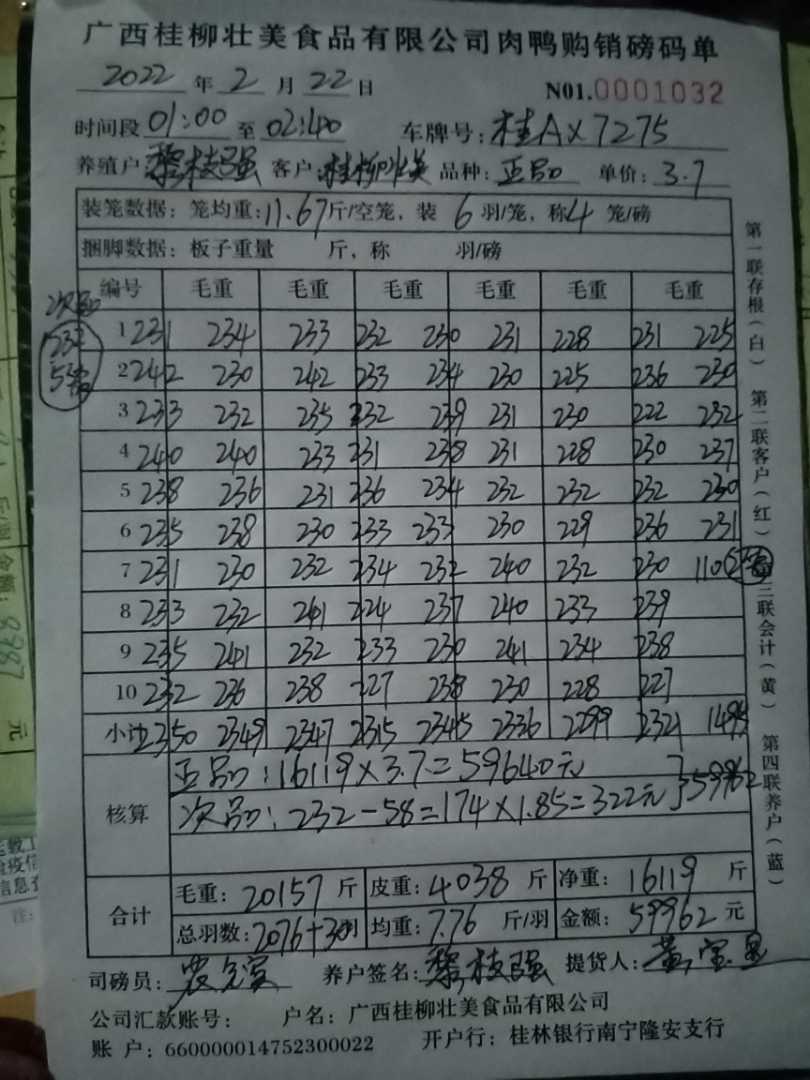 广西桂柳壮美食品有限公司肉鸭购销磅码单
2022 年 2 月 22 日 N01.0001032
时间段 01:00 至 02:40 车牌号: 桂AX7275
养殖户 黎枝强 客户: 桂柳壮美 品种: 正品 单价: 3.7
装笼数据: 笼均重: 11.67 斤/空笼, 装 6 羽/笼, 称 4 笼/磅
捆脚数据: 板子重量 斤, 称 羽/磅
编号 毛重 毛重 毛重 毛重 毛重 毛重
次品
232
1 231 234 233 232 230 231 228 231 225
2 242 230 242 233 234 230 225 236 230
3 233 232 235 232 239 231 230 222 232
4 240 240 233 231 238 231 228 230 237
5 238 236 231 236 234 232 232 232 230
6 235 238 230 233 233 230 229 236 231
7 231 230 232 234 232 240 232 230 110
8 233 232 241 224 237 240 233 239
9 235 241 232 233 230 241 234 238
10 232 236 238 227 238 230 228 227
小计 2350 2349 2347 2315 2345 2336 2299 2321 1495
核算
正品: 16119×3.7=59640元
次品: 232-58=174×1.85=322元 }59962
合计
毛重: 20157 斤 皮重: 4038 斤 净重: 16119 斤
总羽数: 2076+30羽 均重: 7.76 斤/羽 金额: 59962 元
司磅员: 养户签名: 黎枝强 提货人: 黄宝
公司汇款账号: 户名: 广西桂柳壮美食品有限公司
账 户: 660000014752300022 开户行: 桂林银行南宁隆安支行
第一联存根(白) 第二联客户(红) 三联会计(黄) 第四联养户(蓝)